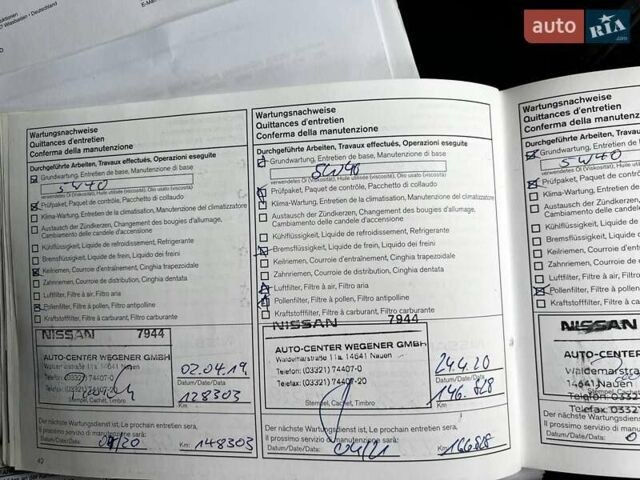 Wiesbaden • Deutschland
E-Mail
auto RIA .com
Wartungsnachweise
Quittances d'entretien
Conferma della manutenzione
Durchgeführte Arbeiten, Travaux effectués, Operazioni eseguite
Grundwartung, Entretien de base, Manutenzione di base
5W40
verwendetes Öl (Viskosität), Huile utilisée (viscosité), Olio usato (viscosità)
Prüfpaket, Paquet de contrôle, Pacchetto di collaudo
Klima-Wartung, Entretien de la climatisation, Manutenzione del climatizzatore
Austausch der Zündkerzen, Changement des bougies d'allumage,
Cambiamento delle candele d'accensione
Kühlflüssigkeit, Liquide de refroidissement, Refrigerante
Bremsflüssigkeit, Liquide de frein, Liquido dei freini
Keilriemen, Courroie d'entraînement, Cinghia trapezoidale
Zahnriemen, Courroie de distribution, Cinghia dentata
Luftfilter, Filtre à air, Filtro aria
Pollenfilter, Filtre à pollen, Filtro antipolline
Kraftstofffilter, Filtre à carburant, Filtro carburante
NISSAN 7944
AUTO-CENTER WEGENER GMBH
Waldemarstraße 11a, 14641 Nauen
Telefon: (03321) 74407-0
Telefax: (03321) 74407-20
02.04.19
Datum/Date/Data
128303
Km
Stempel, Cachet, Timbro
Der nächste Wartungsdienst ist, Le prochain entretien sera,
Il prossimo servizio di manutenzione sarà:
Datum/Date/Data: 04/20 Km: 148303
42
Wartungsnachweise
Quittances d'entretien
Conferma della manutenzione
Durchgeführte Arbeiten, Travaux effectués, Operazioni eseguite
Grundwartung, Entretien de base, Manutenzione di base
5W40
verwendetes Öl (Viskosität), Huile utilisée (viscosité), Olio usato (viscosità)
Prüfpaket, Paquet de contrôle, Pacchetto di collaudo
Klima-Wartung, Entretien de la climatisation, Manutenzione del climatizzatore
Austausch der Zündkerzen, Changement des bougies d'allumage,
Cambiamento delle candele d'accensione
Kühlflüssigkeit, Liquide de refroidissement, Refrigerante
Bremsflüssigkeit, Liquide de frein, Liquido dei freini
Keilriemen, Courroie d'entraînement, Cinghia trapezoidale
Zahnriemen, Courroie de distribution, Cinghia dentata
Luftfilter, Filtre à air, Filtro aria
Pollenfilter, Filtre à pollen, Filtro antipolline
Kraftstofffilter, Filtre à carburant, Filtro carburante
NISSAN 7944
AUTO-CENTER WEGENER GMBH
Waldemarstraße 11a, 14641 Nauen
Telefon: (03321) 74407-0
Telefax: (03321) 74407-20
24.4.20
Datum/Date/Data
146.828
Km
Stempel, Cachet, Timbro
Der nächste Wartungsdienst ist, Le prochain entretien sera,
Il prossimo servizio di manutenzione sarà:
Datum/Date/Data: 04/21 Km: 166828
Wartungsnachweise
Quittances d'entretien
Conferma della manutenzione
Durchgeführte Arbeiten, Travaux
Grundwartung, Entretien de b
5W40
verwendetes Öl (Viskosität), Huile
Prüfpaket, Paquet de contrô
Klima-Wartung, Entretien de
Austausch der Zündkerzen,
Cambiamento delle candele
Kühlflüssigkeit, Liquide de
Bremsflüssigkeit, Liquide d
Keilriemen, Courroie d'ent
Zahnriemen, Courroie de
Luftfilter, Filtre à air, Filtr
Pollenfilter, Filtre à polle
Kraftstofffilter, Filtre à c
NISSAN
AUTO-CENTER
Waldemarstra
14641 Nauen
Telefon: (0332
Telefax: (0332
Stempel, Cachet,
Der nächste Wartungsdienst
Il prossimo servizio di manu
Datum/Date/Data: